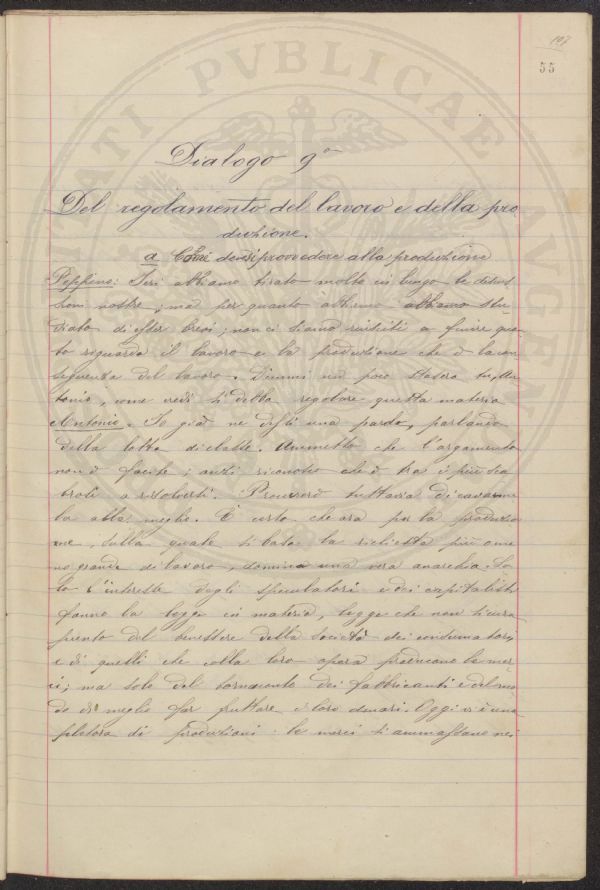 107
55
Dialogo 9º
Del regolamento del lavoro e della pro
duzione.
a Come devesi provvedere alla produzione
Peppino: Ieri abbiamo tirato molto in lungo le discus
sioni nostre; ma per quanto abbiamo abbiamo stu
diato di esser brevi, non ci siamo riusciti a finire quan
to riguarda il lavoro e la produzione che è la con
seguenza del lavoro. Dimmi un poco stasera tu, An
tonio, come credi si debba regolare questa materia
Antonio. Io già ne dissi una parola, parlando
della lotta di classe. Ammetto che l'argomento
non è facile; anzi riconosco che è tra i più sca
brosi a risolversi. Procurerò tuttavia di cavarme
la alla meglio. È certo che ora per la produzio
ne, sulla quale si basa la richiesta più o me
no grande di lavoro, domina una vera anarchia. So
lo l'interesse degli speculatori e dei capitalisti
fanno la legge in materia, legge che non si cura
punto del benessere della società dei consumatori
e di quelli che colla loro opera producono le mer
ci; ma solo del tornaconto dei fabbricanti e del mo
do di meglio far fruttare i loro denari. Oggi vi è una
pletora di produzioni: le merci si ammassano nei